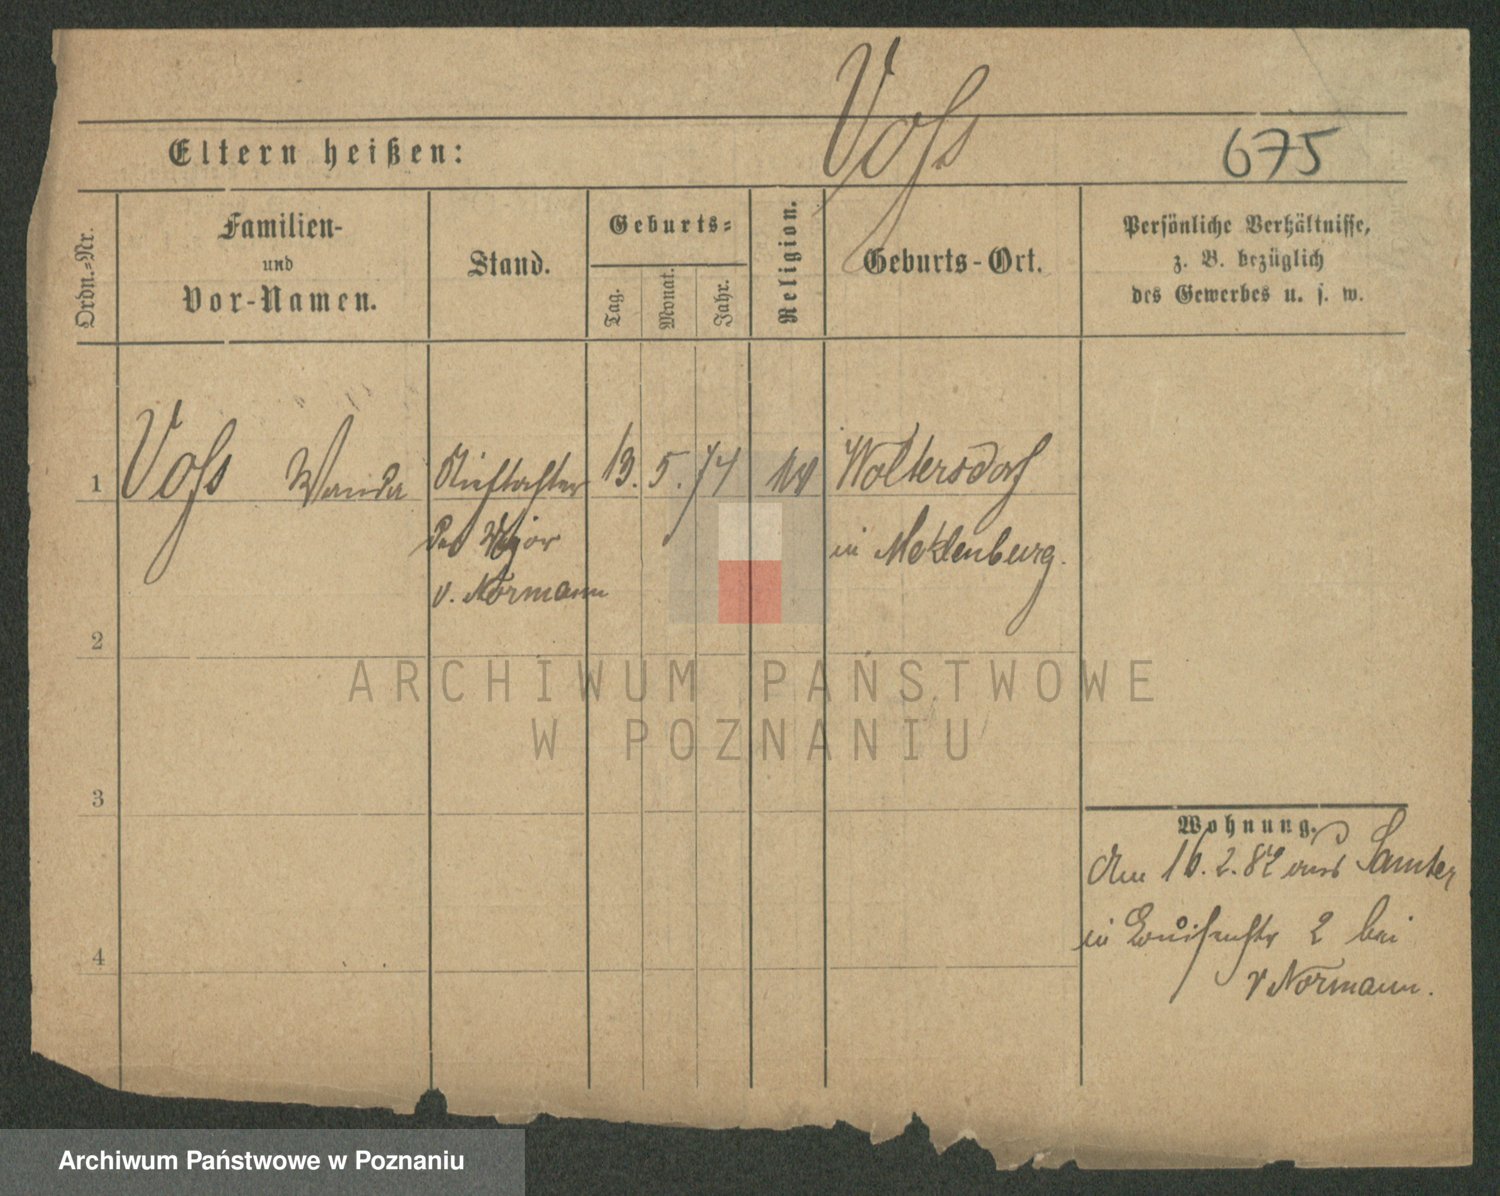 Voß
675
Eltern heißen:
Ordn.-Nr.
Familien-
und
Vor-Namen.
Stand.
Geburts-
Tag.
Monat.
Jahr.
Religion.
Geburts-Ort.
Persönliche Verhältnisse,
z. B. bezüglich
des Gewerbes u. s. w.
1 Voß Wanda 13. 5. 74 Woltersdorf
des Major in Meklenburg.
v. Normann
2
ARCHIWUM PAŃSTWOWE
W POZNANIU
3
Wohnung.
16. 2. 82 aus Samter
4
in Louisenstr 2 bei
v Normann.
Archiwum Państwowe w Poznaniu